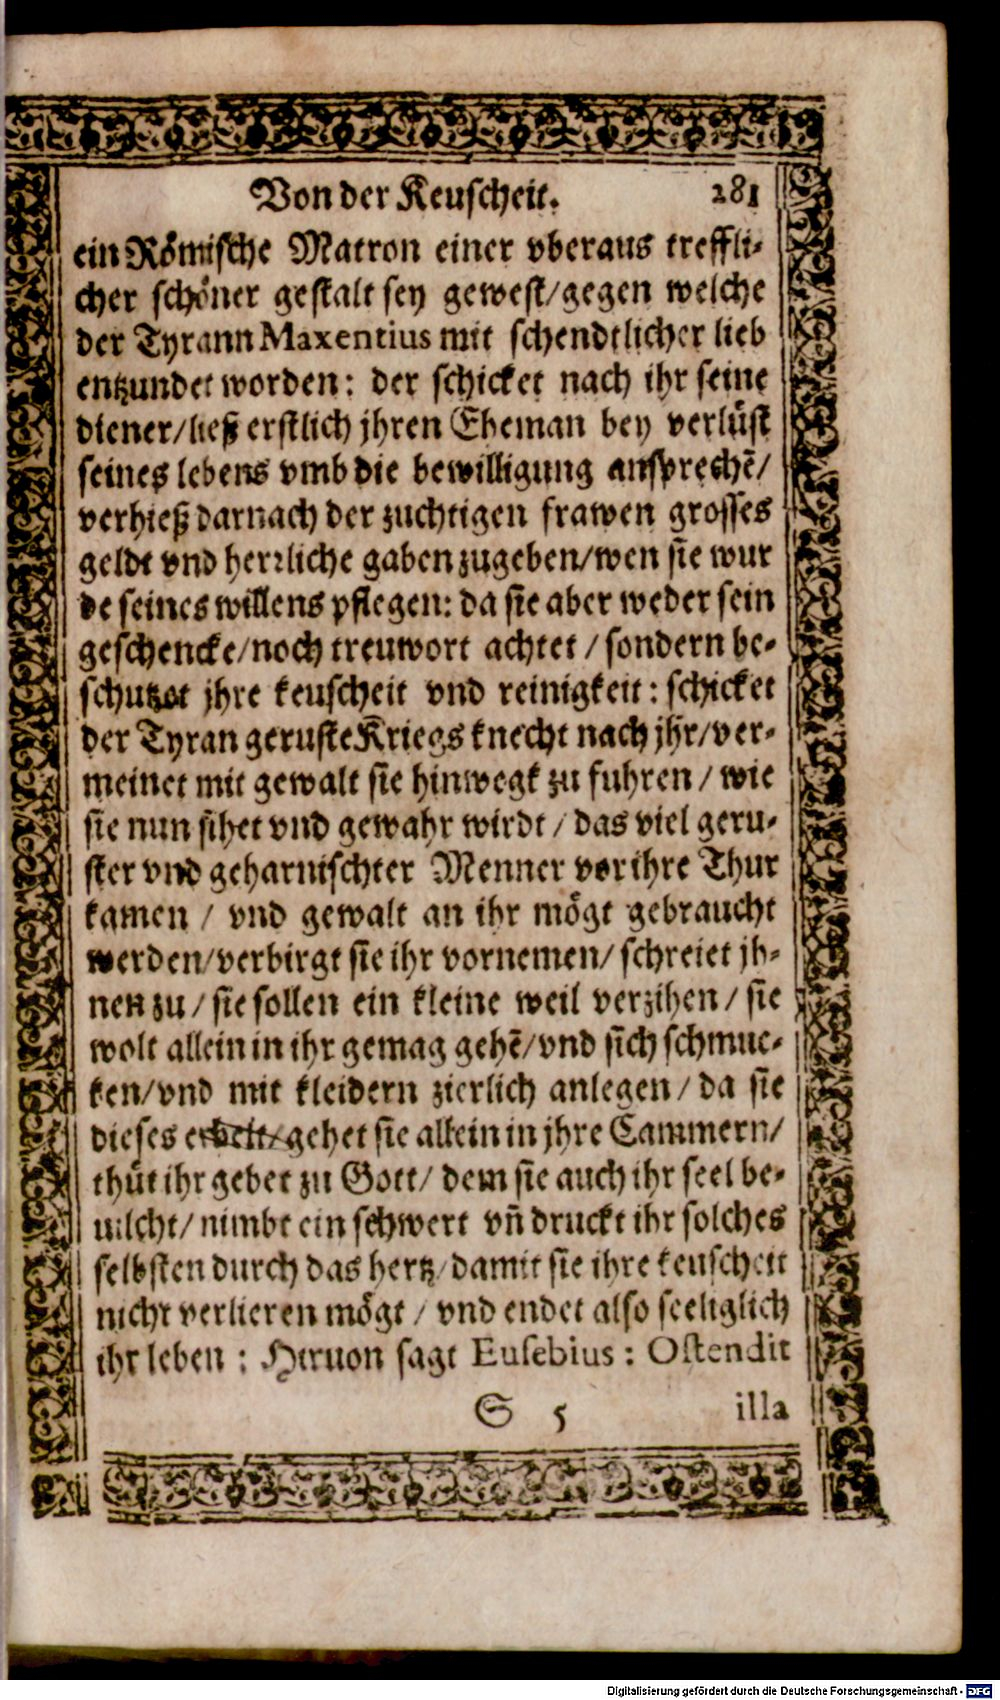 Von der Keuscheit. 281
ein Römische Matron einer vberaus treffli-
cher schöner gestalt sey gewest/gegen welche
der Tyrann Maxentius mit schendtlicher lieb
entzundet worden: der schicket nach ihr seine
diener/ließ erstlich jhren Eheman bey verlüst
seines lebens vmb die bewilligung ansprechē/
verhieß darnach der zuchtigen frawen grosses
geldt vnd herꝛliche gaben zugeben/wen sie wur
de seines willens pflegen: da sie aber weder sein
geschencke/noch treuwort achtet/sondern be-
schutzet jhre keuscheit vnd reinigkeit: schicket
der Tyran geruste Kriegs knecht nach jhr/ver-
meinet mit gewalt sie hinwegk zu fuhren/wie
sie nun sihet vnd gewahr wirdt/das viel geru-
ster vnd geharnischter Menner vor ihre Thur
kamen/ vnd gewalt an ihr mögt gebraucht
werden/verbirgt sie ihr vornemen/schreiet jh-
nen zu/sie sollen ein kleine weil verzihen/sie
wolt allein in ihr gemag gehē/vnd sich schmuc-
ken/vnd mit kleidern zierlich anlegen/da sie
dieses gehet sie allein in jhre Cammern/
thüt ihr gebet zu Gott/dem sie auch ihr seel be-
uilcht/nimbt ein schwert vñ druckt ihr solches
selbsten durch das hertz/damit sie ihre keuscheit
nicht verlieren mögt/vnd endet also seeliglich
ihr leben: Hiruon sagt Eusebius: Ostendit
S 5 illa
Digitalisierung gefördert durch die Deutsche Forschungsgemeinschaft - DFG